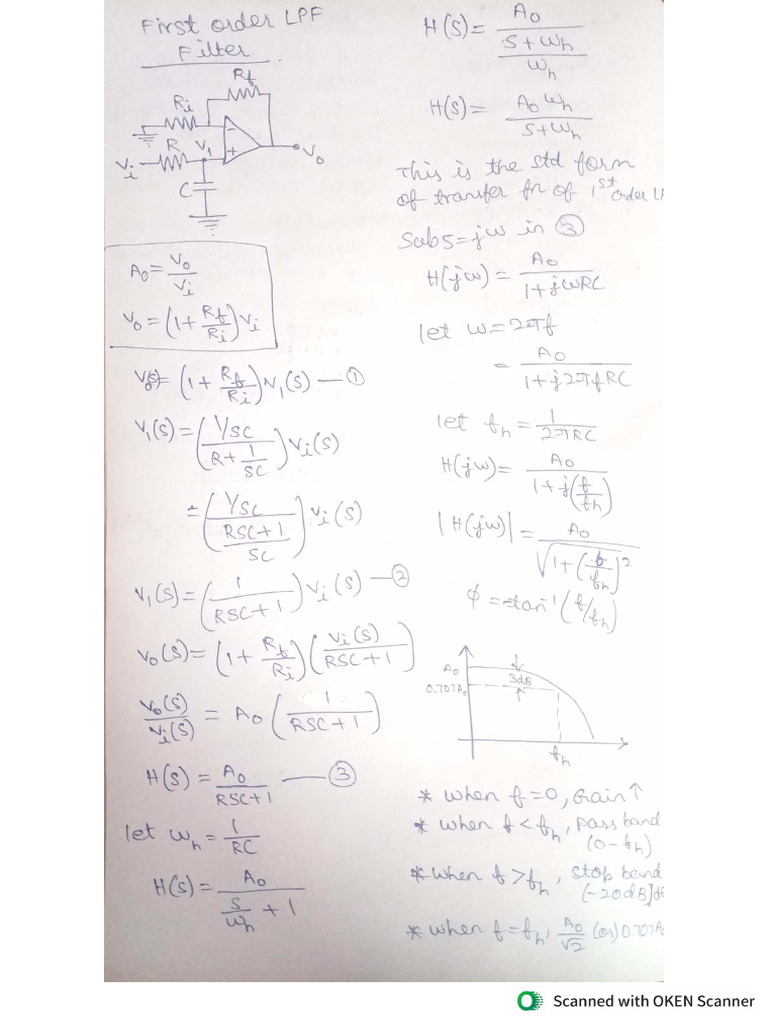 First order LPF
Filter
Rf
Ri
R
V1
Vi
C
Vo
-
+
A0 = Vo/Vi
Vo = (1 + Rf/Ri) Vi
Vo(S) = (1 + Rf/Ri) V1(S) — ①
V1(S) = ((1/SC)/(R + 1/SC)) Vi(S)
= ((1/SC)/((RSC+1)/SC)) Vi(S)
V1(S) = (1/(RSC+1)) Vi(S) — ②
Vo(S) = (1 + Rf/Ri) (Vi(S)/(RSC+1))
Vo(S)/Vi(S) = A0 (1/(RSC+1))
H(S) = A0/(RSC+1) — ③
let ωh = 1/RC
H(S) = A0/(S/ωh + 1)
H(S) = A0/((S+ωh)/ωh)
H(S) = A0ωh/(S+ωh)
This is the std form
of transfer fn of 1st order L
Sub S=jω in ③
H(jω) = A0/(1+jωRC)
let ω=2πf
= A0/(1+j2πfRC)
let fh = 1/(2πRC)
H(jω) = A0/(1+j(f/fh))
|H(jω)| = A0/√(1+(f/fh)²)
φ = -tan⁻¹(f/fh)
A0
3dB
0.707A0
fh
* when f=0, Gain↑
* when f<fh, pass band
(0-fh)
* when f>fh, stop band
(-20dB/de
* when f=fh, A0/√2 (or) 0.707A
Scanned with OKEN Scanner